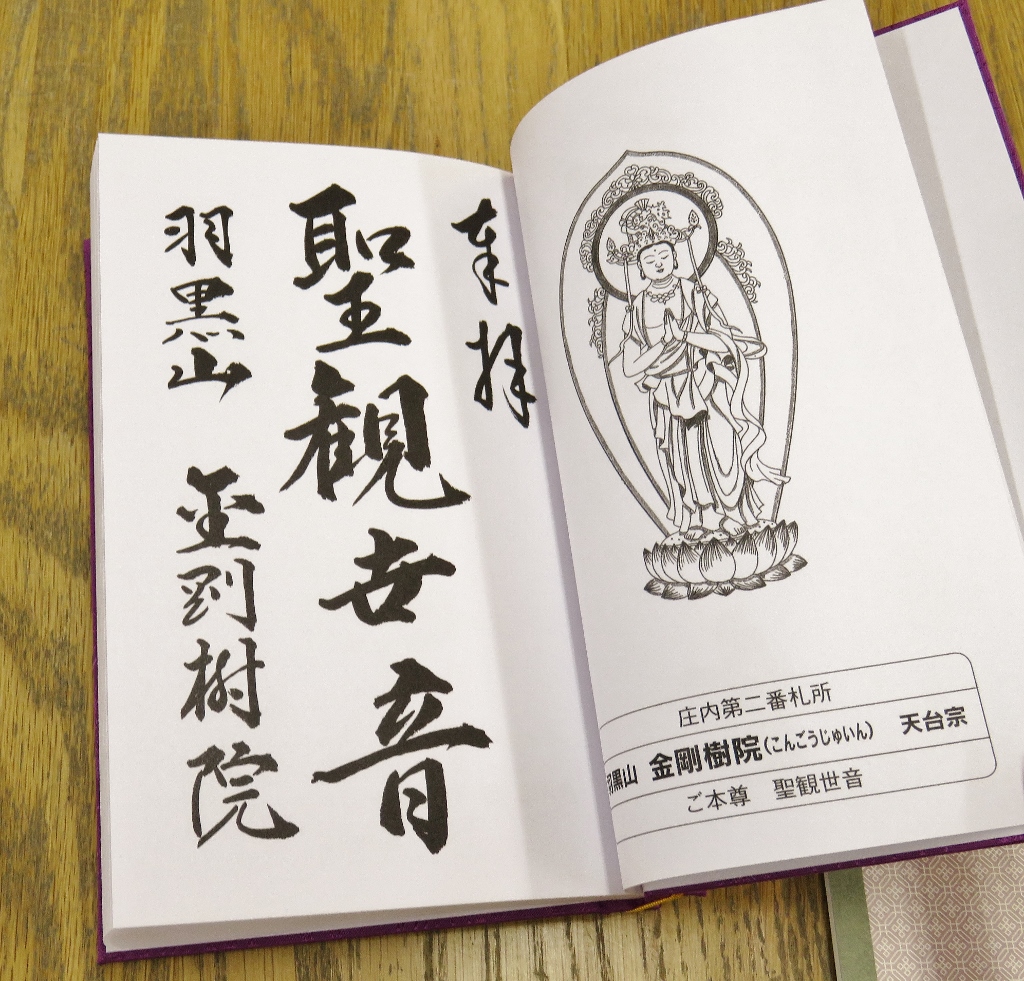 奉拝
聖観世音
羽黒山 金剛樹院
庄内第二番札所
羽黒山 金剛樹院(こんごうじゅいん) 天台宗
ご本尊 聖観世音